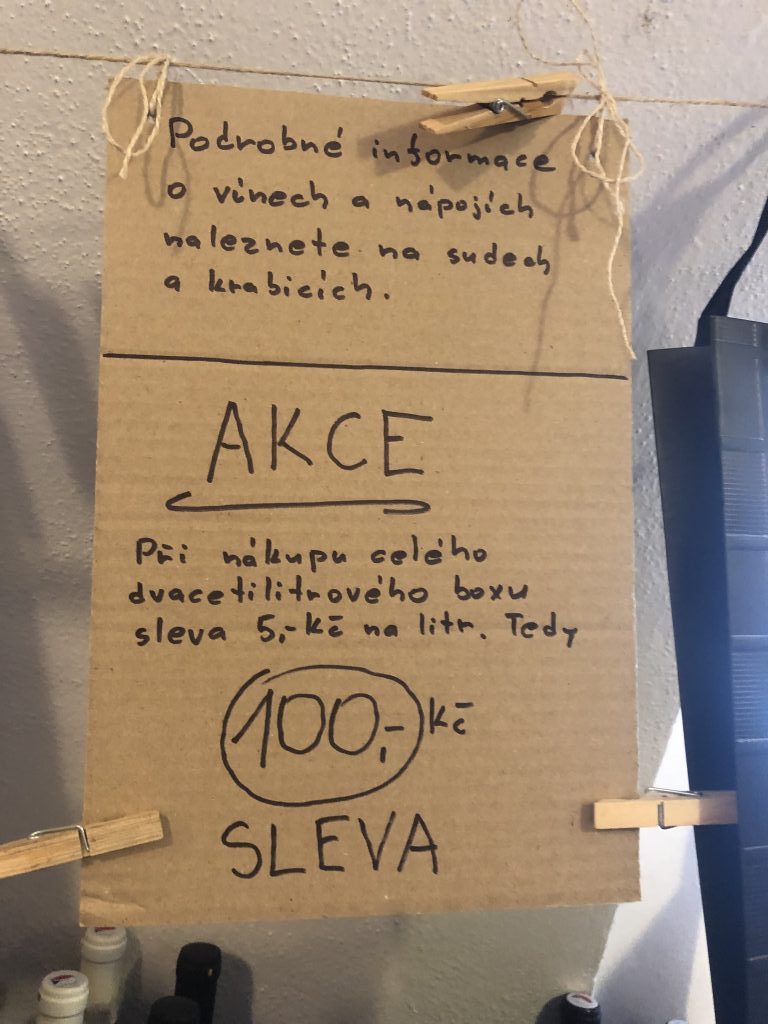 Podrobné informace
o vínech a nápojích
naleznete na sudech
a krabicích.
AKCE
Při nákupu celého
dvacetilitrového boxu
sleva 5,-Kč na litr. Tedy
100,- Kč
SLEVA